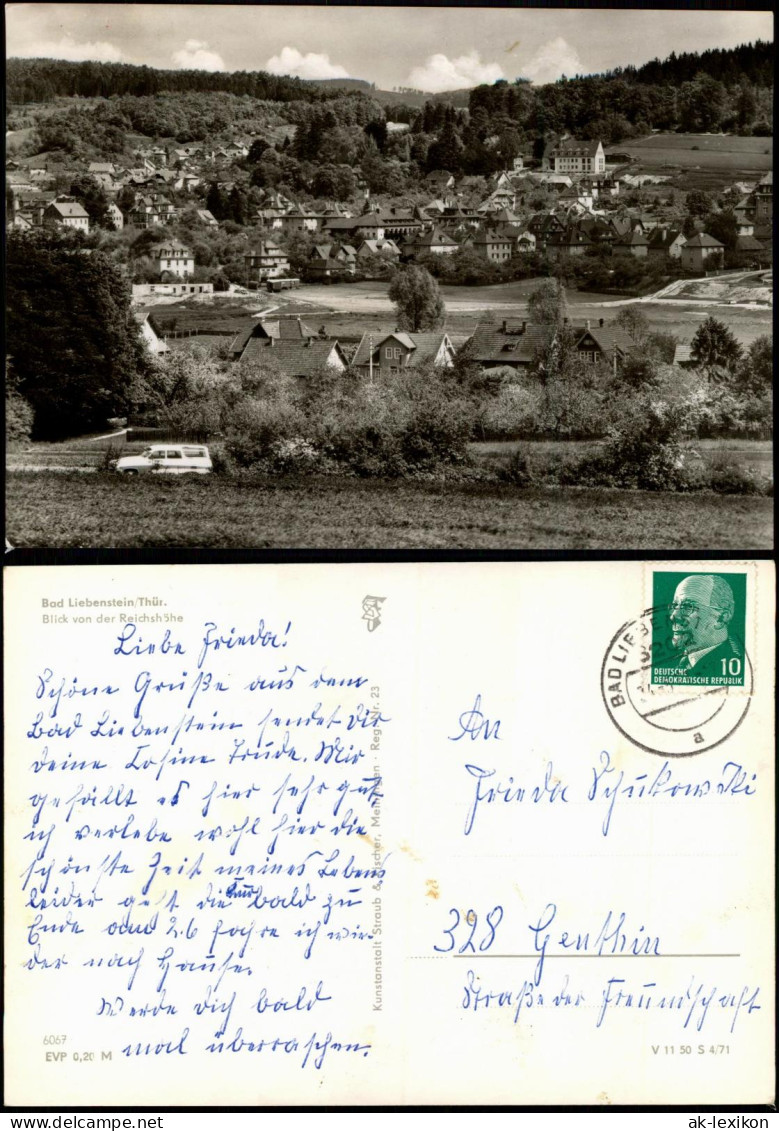 Bad Liebenstein/Thür.
Blick von der Reichshöhe
Liebe Frieda!
Schöne Grüße aus dem
Bad Liebenstein sendet Dir
deine Cosine Trude. Mir
gefällt es hier sehr gut
ich verlebe wohl hier die
schönste Zeit meines Lebens
leider geht die Kur bald zu
Ende am 2.6 fahre ich wie-
der nach Hause.
Werde dich bald
mal überraschen.
6067
EVP 0,20 M
Kunstanstalt Straub & Fischer, Meiningen · Reg.-Nr. 23
10
DEUTSCHE
DEMOKRATISCHE REPUBLIK
BAD LIEBEN
a
An
Frieda Schukowski
328 Genthin
Straße der Freundschaft
V 11 50 S 4/71
www.ansichtskarten-lexikon.de
ak-lexikon.com